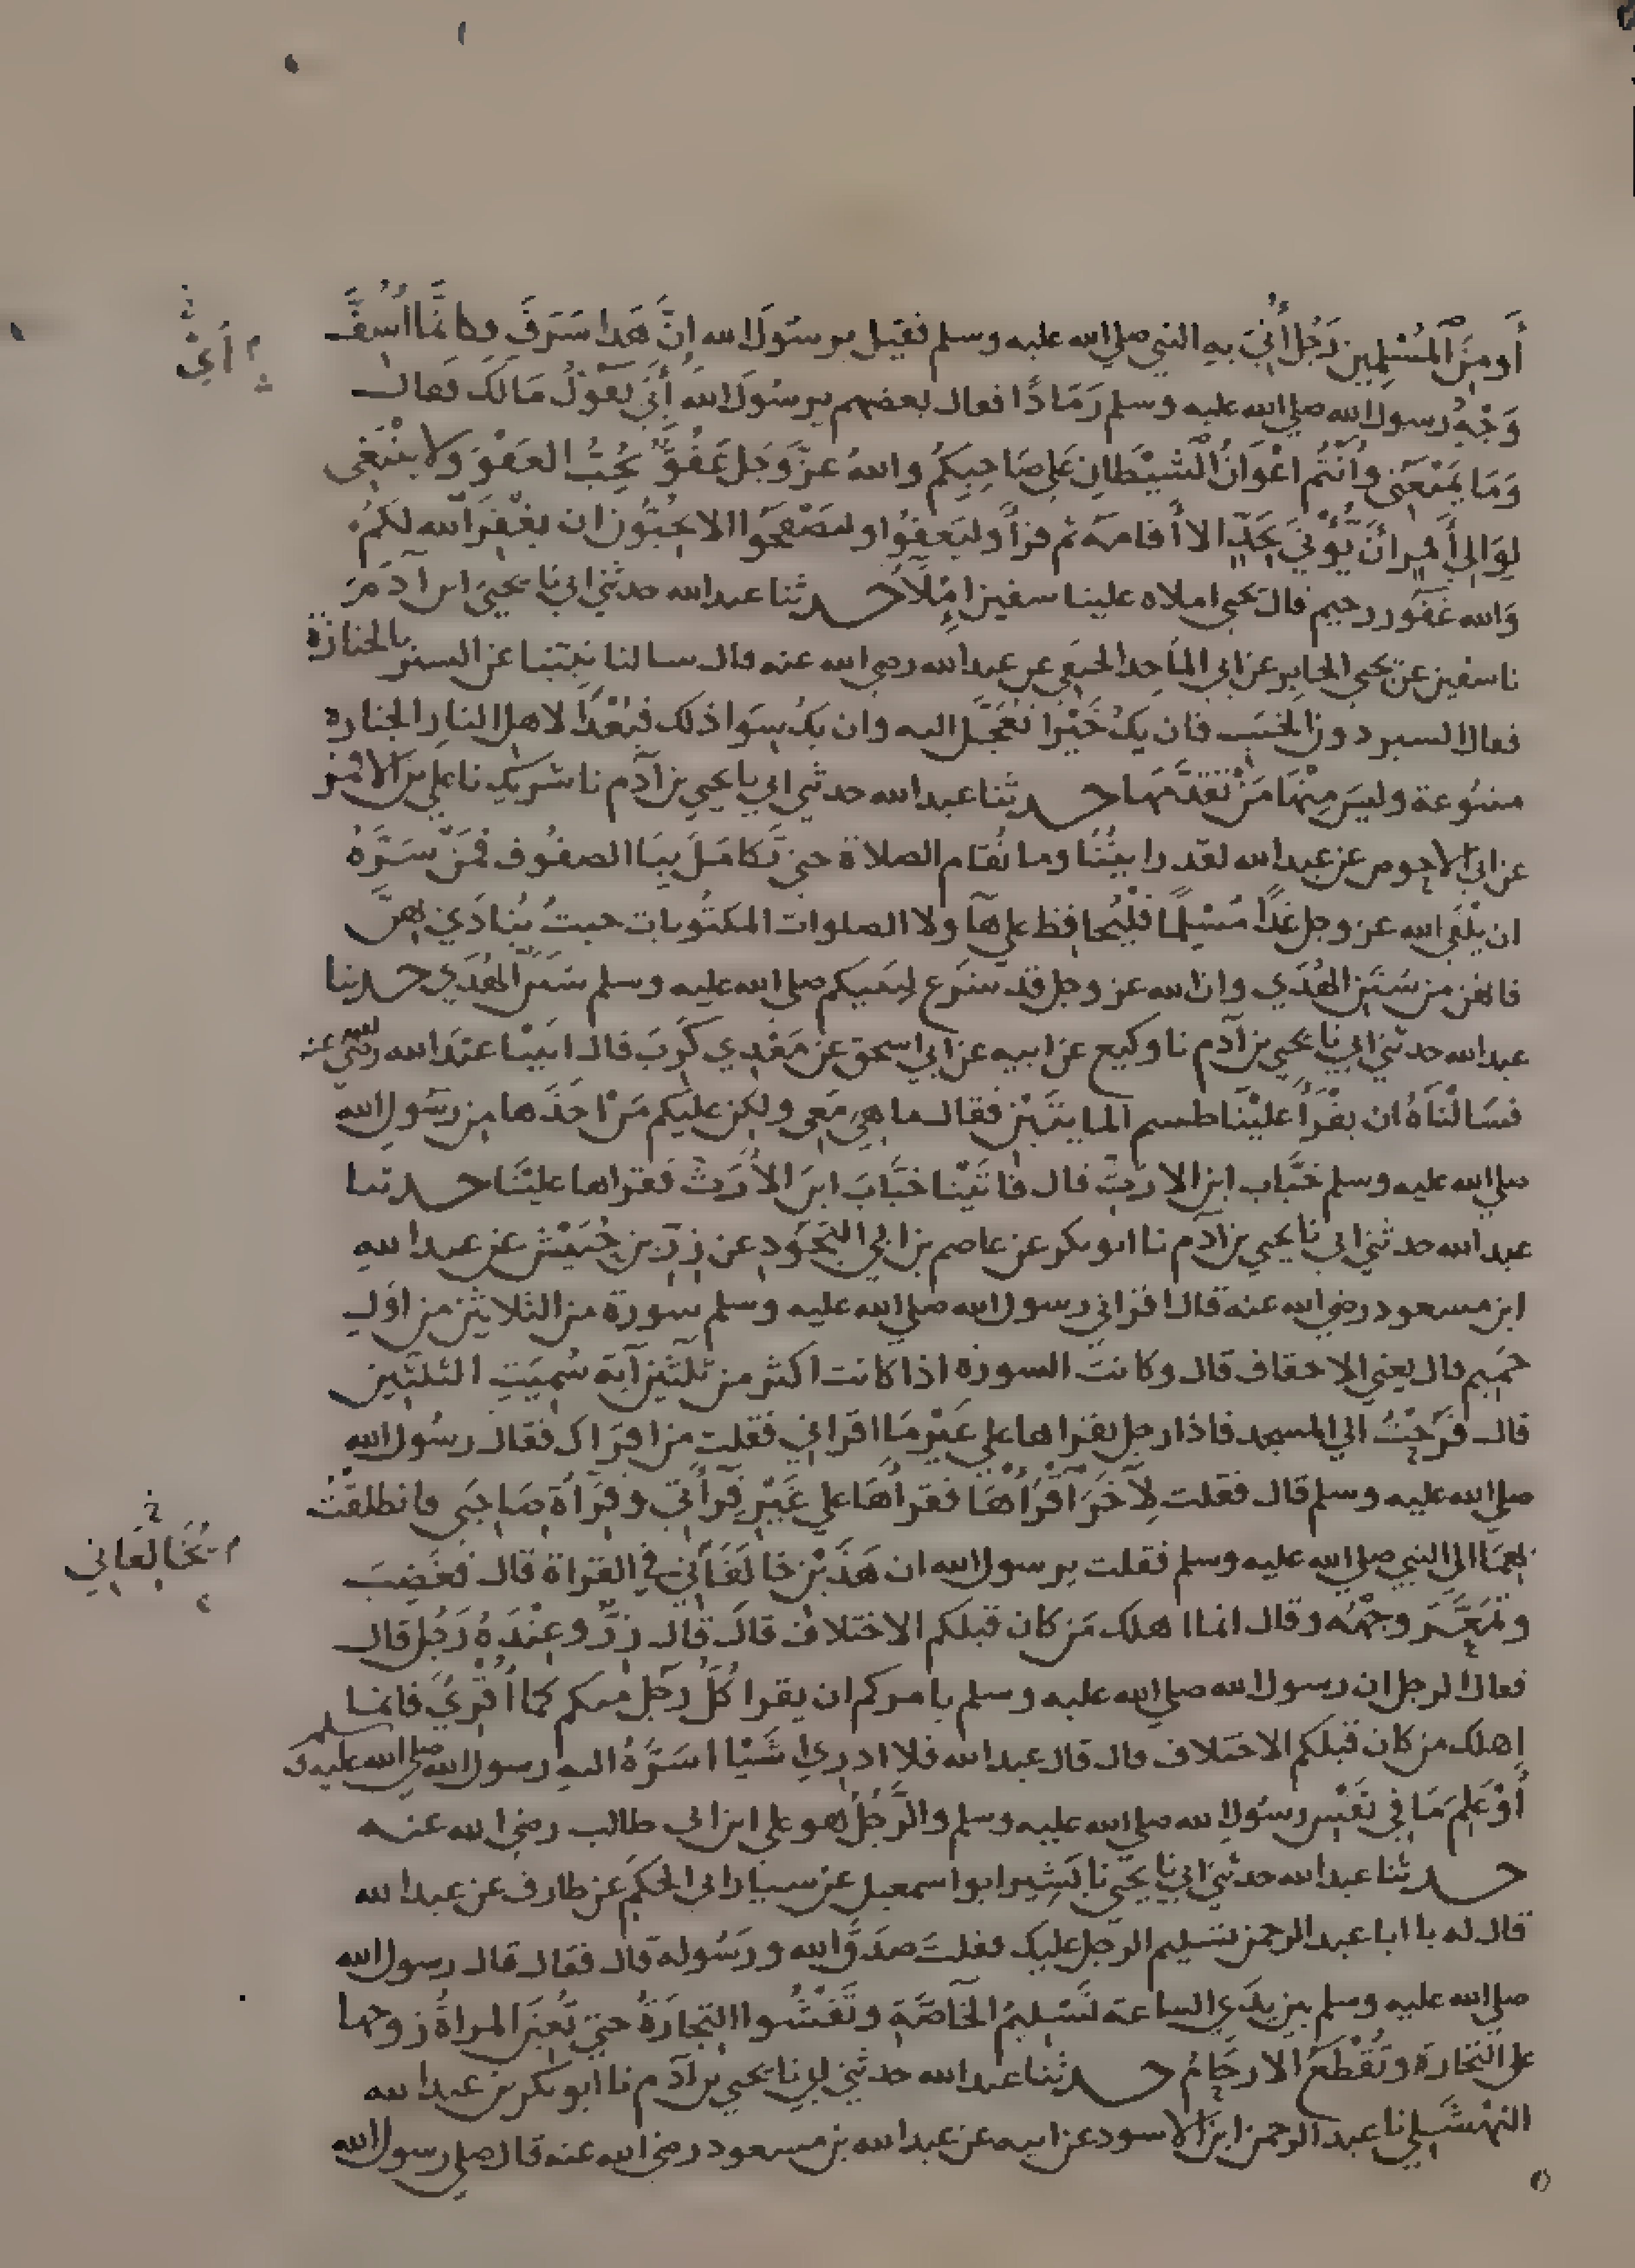 أو من المسلمين رَجُل أُتيَ به النبي صلي الله عليه وسلم فقيل يرسُولَ الله انَّ هَذا سَرَقَ وكانَّما أُسِفَّ
وَجْهُ رسول الله صلي الله عليه وسلم رَمَادًا فقال بعضهم يرسُولَ الله أَيْ يَقولُ مَالَكَ فقال
وَمَا يَمْنَعُني وأنتُم اعْوَانُ الشيْطَانِ عَلي صَاحِبِكُم والله عزَّ وَجَل عَفُوٌّ يُحِبُّ العَفْوَ ولا يَنْبَغِي
لِوَالِي أَمْرٍ أنْ يُؤْتَي بحَدٍّ الا أقامه ثم قرأ وليَعفُوا وليَصْفَحُوا الا تحبُّون ان يغْفِرَ الله لكُم
وَالله غَفُور رحيم قال يحيي املاه علينا سفين امْلاً حدثنا عبد الله حدثني ابي نا يحيي ابن آدمَ
نا سفين عن يحيي الجابر عن ابي الماجد الحنفي عن عبد الله رضي الله عنه قال سالنا نبيَّنا عن السير بالجنازة
فقال السير دون الخبَب فان يَكُ خَيْرًا تُعَجَّل اليه وان يكُ سِوَا ذلك فبُعْدًا لاهل النار الجنازة
متبُوعة وليسَ مِنْهَا مَنْ تَقَدَّمَهَا حدثنا عبد الله حدثني ابي نا يحيي بن آدم نا شريك نا علي بن الاقمر
عن ابي الاحوص عن عبد الله لقد رايتُنَا وما تُقَام الصلاة حتي تَكَامَلَ بِنَا الصفُوف فمَنْ سَرَّهُ
ان يلقَي الله عز وجل غدًا مُسْلِمًا فلْيُحافِظ علي هآولا الصلوات المكتُوبات حيثُ يُنَادَي بهِنَّ
فانهن من سُنَن الهُدَي وان الله عز وجل قد شرَع لنبيكم صلي الله عليه وسلم سُنَنَ الهُدَي حدثنا
عبد الله حدثني ابي نا يحيي بن آدم نا وكيع عن ابيه عن ابي اسحق عن مَعْدِي كرِبَ قال اتينَا عبْدَ الله رضي الله عنه
فسَالْنَاهُ ان يقْرَأ علَيْنَا طسم المايتَيْن فقال ما هِيَ مَعِي ولكن عليكم مَنْ اخَذَها من رسُول الله
صلي الله عليه وسلم خبَّاب ابن الارتّ قال فاتَيْنَا خبَّابَ ابنَ الأرَتّ فقراها علَيْنَا حدثنا
عبد الله حدثني ابي نا يحيي بن آدم نا ابو بكر عن عاصم بن ابي النجُود عن زرِّ بن حُبَيْش عن عبد الله
ابن مسعود رضي الله عنه قال اقراني رسول الله صلي الله عليه وسلم سورة من الثلاثين من اول
حَمِيم قال يعني الاحقاف قال وكانت السورة اذا كانت اكثر من ثلثين آية سُمِيَتِ الثلثين
قال فرُحْتُ الي المسجد فاذا رجل يقراها علي غَيْر مَا اقراني فقلت من اقرَاك فقال رسُول الله
صلي الله عليه وسلم قال فقلت لِآخَرَ اقْرَأْهَا فقرأَهَا علي غَيْرِ قِرَأتي وقِرَأة صَاحِبي فانطلقْتُ
بهمَا الي النبي صلي الله عليه وسلم فقلت يرسول الله ان هَذَيْن خالَفَاني في القراة قال فغَضِبَ
وتمَعَّرَ وجْهُه وقال انما اهلك مَن كان قبلكم الاختلاف قال قال زرٌّ وعِنْدَهُ رَجُل قال
فقال الرجل ان رسول الله صلي الله عليه وسلم يامركم ان يقرا كُلُّ رَجُل منكم كما أُقْرِيَ فانما
اهلك من كان قبلكم الاختلاف قال قال عبد الله فلا ادرِي اشَيْا اسَرَّهُ اليه رسول الله صلي الله عليه وسلم
أوْ عَلِمَ مَا في نَفْسِ رسُول الله صلي الله عليه وسلم والرَّجُلُ هو علي ابن ابي طالب رضي الله عنه
حدثنا عبد الله حدثني ابي نا يحيي نا بَشِير ابو اسمعيل عن سيار ابي الحكَم عن طارق عن عبد الله
قال له يا ابا عبد الرحمن تسْلِيم الرجل عليك فقلتَ صَدَقَ الله ورَسُوله قال فقال قال رسول الله
صلي الله عليه وسلم بين يَدَي الساعة تسْلِيمُ الخآصَّةِ وتَفْشُوا التِجَارَةُ حتي تُعِينَ المراةُ زوجها
علي التجارة وتُقْطَعُ الارحَامُ حدثنا عبد الله حدثني ابي نا يحيي بن آدم نا ابو بكر بن عبد الله
النهْشَلِي نا عبد الرحمن ابن الاسود عن ابيه عن عبد الله بن مسعود رضي الله عنه قال صلي رسول الله
أيْ
يُخَالفاني